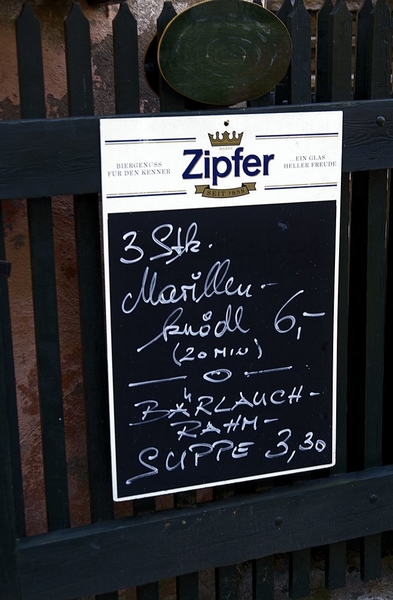 MARKE
Zipfer
BIERGENUSS
FÜR DEN KENNER
...EIN GLAS
HELLER FREUDE
SEIT 1858
3 Stk.
Marillen-
knödl 6,-
(20 MIN)
BÄRLAUCH-
RAHM-
SUPPE 3,30